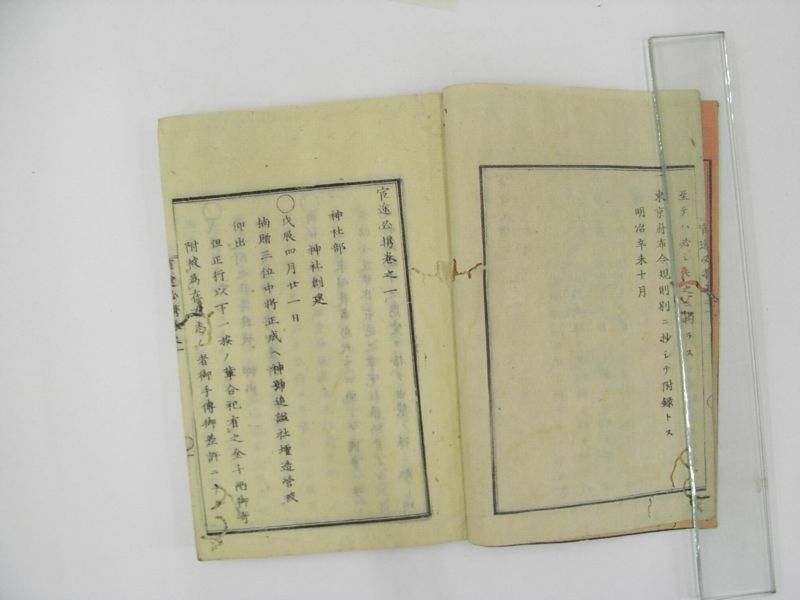 至テハ必シモ之ヲ掲ケス
東京府布令規則別ニ抄シテ附録トス
明治辛未十月
官途必携巻之一
神社部
神社創建
〇戊辰四月廿一日
楠贈三位中将正成ヘ神号追諡社壇造営被
仰出
但正行以下一族ノ輩合祀有之金千両御寄
附被為在志ノ者御手傳御差許ニ